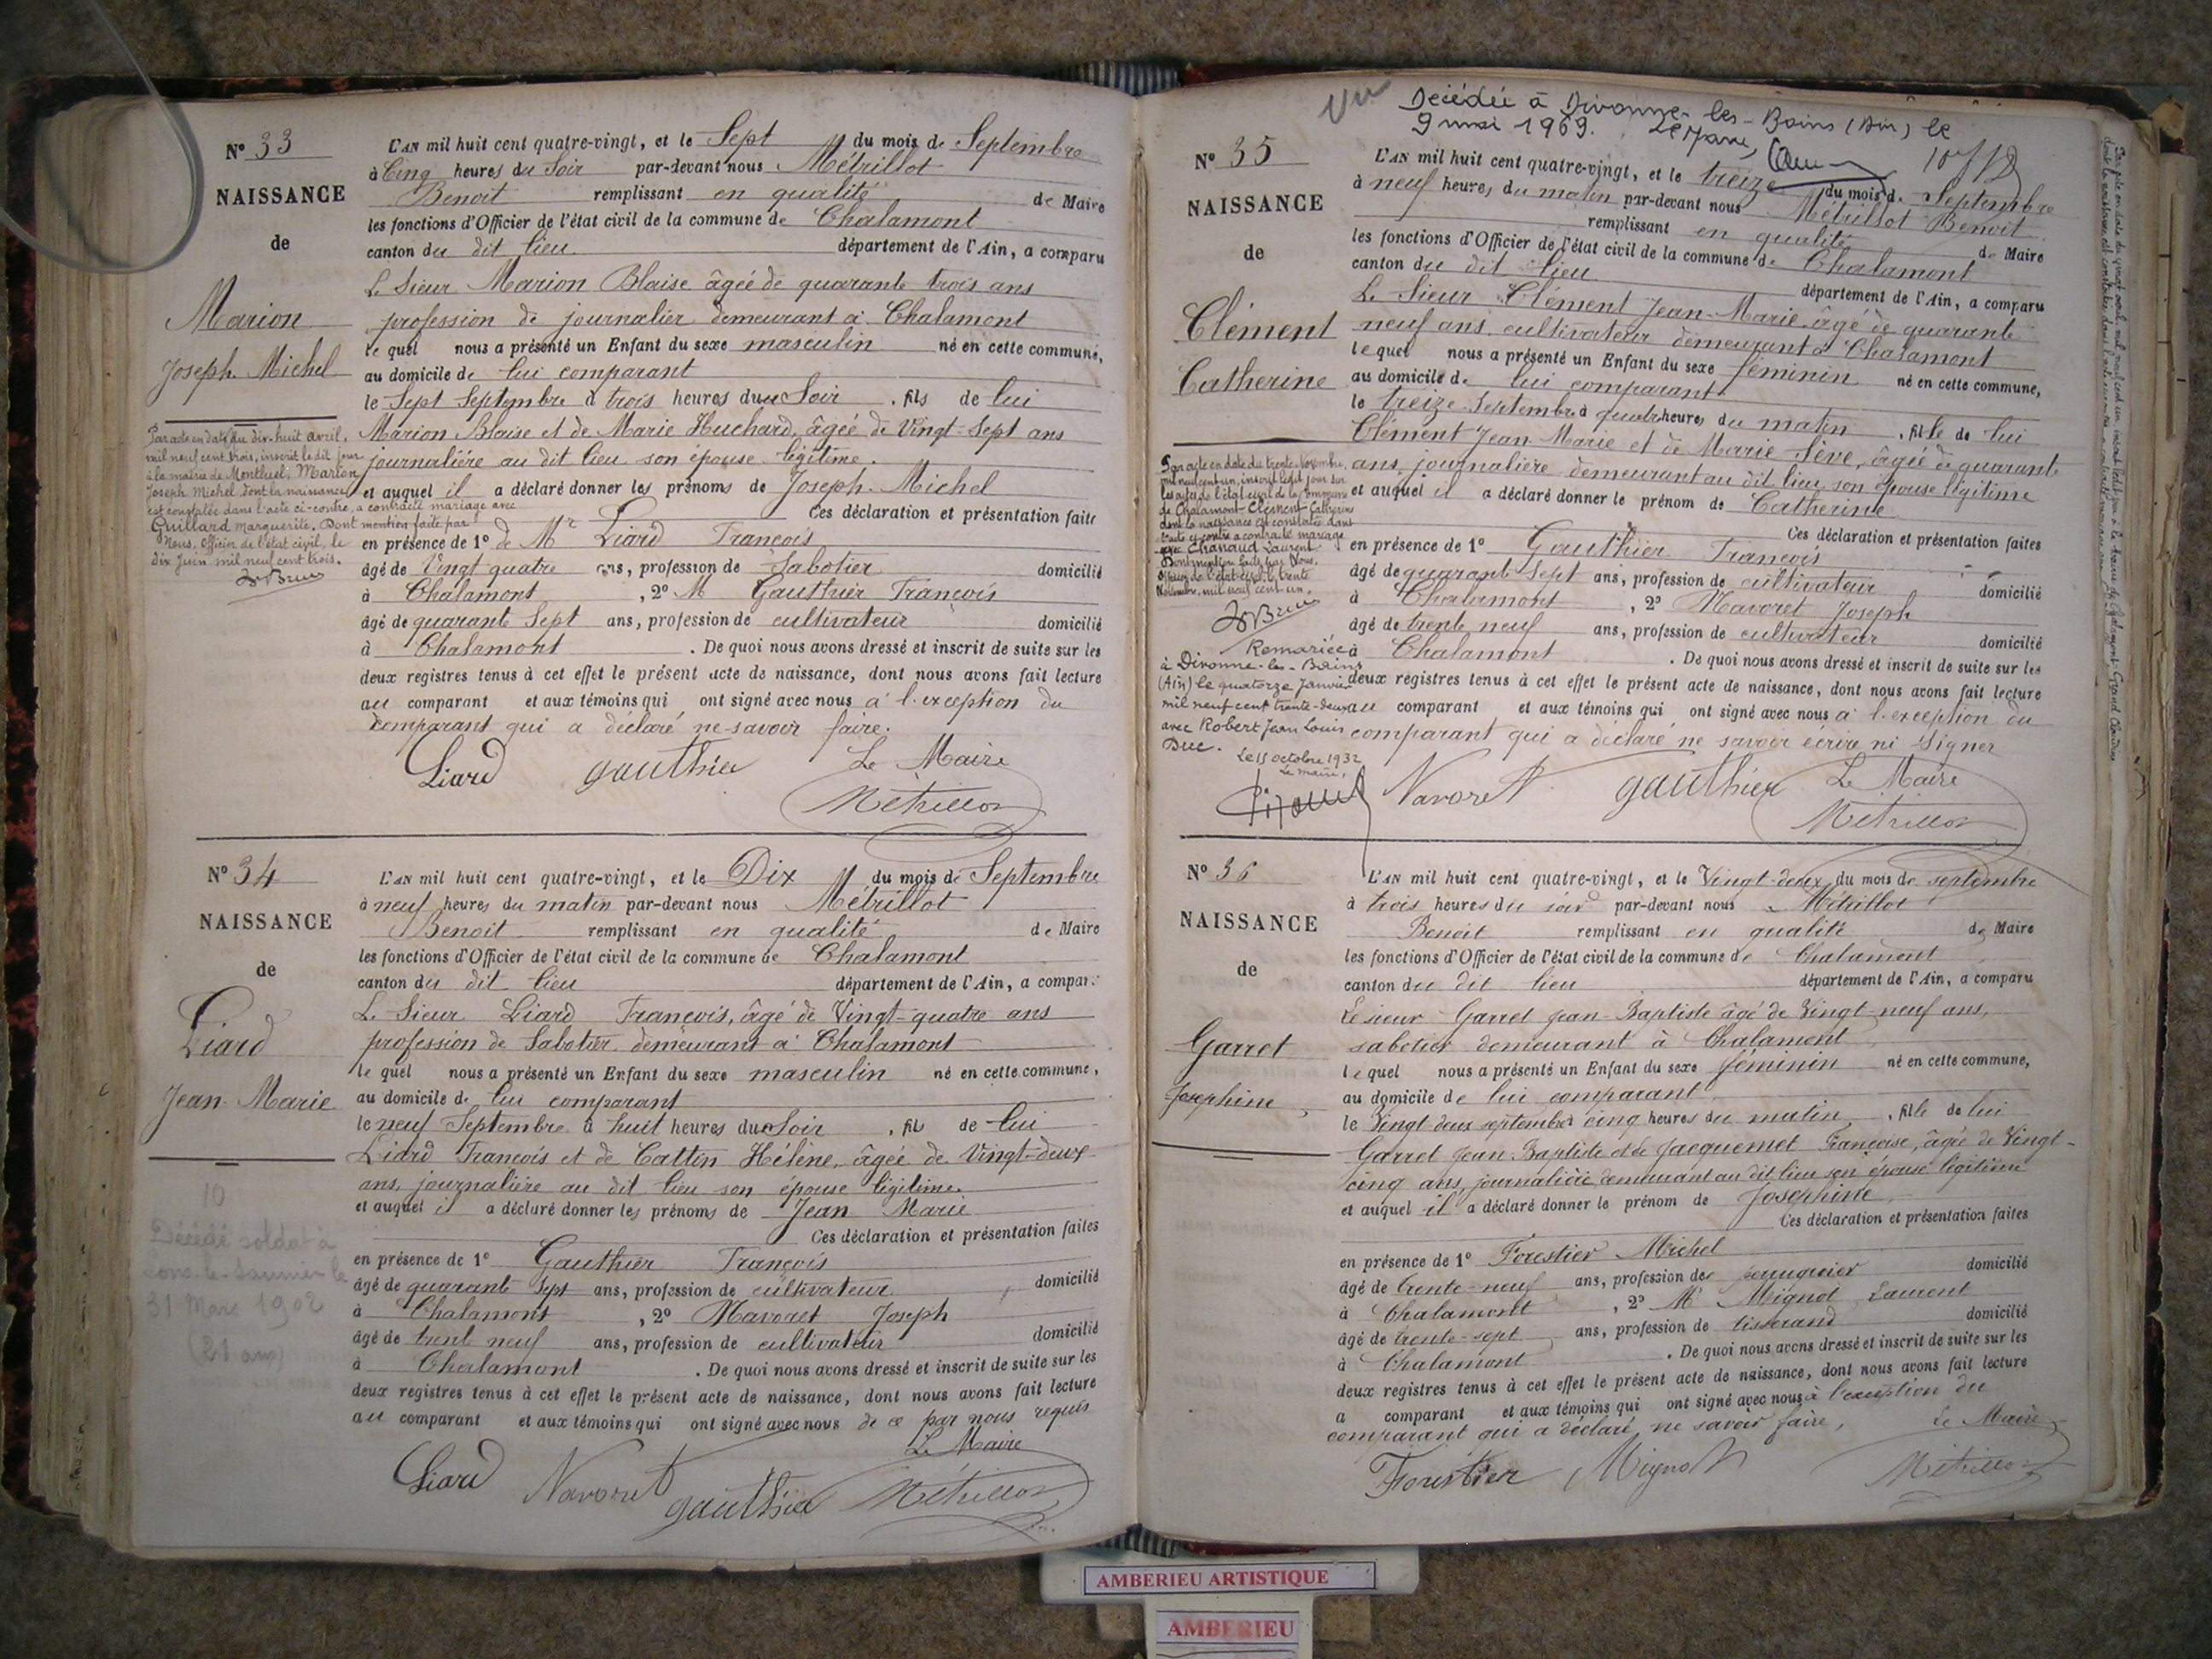 N° 33
NAISSANCE
de
Marion
Joseph Michel
Par acte en date du dix-huit avril,
mil neuf cent trois, inscrit le dit jour
à la mairie de Montluel, Marion
Joseph Michel dont la naissance
est constatée dans l'acte ci-contre, a contracté mariage avec
Guillard Marguerite. Dont mention faite par
Nous, Officier de l'état civil, le
dix Juin mil neuf cent trois.
L'AN mil huit cent quatre-vingt, et le Sept du mois de Septembre
à Cinq heures du Soir par-devant nous Métrillot
Benoit remplissant en qualité de Maire
les fonctions d'Officier de l'état civil de la commune de Chalamont
canton du dit lieu département de l'Ain, a comparu
Le Sieur Marion Blaise âgée de quarante trois ans
profession de journalier demeurant à Chalamont
le quel nous a présenté un Enfant du sexe masculin né en cette commune,
au domicile de lui comparant
le Sept Septembre à trois heures du Soir, fils de lui
Marion Blaise et de Marie Huchard, âgée de Vingt-Sept ans
journalière au dit lieu son épouse légitime.
et auquel il a déclaré donner les prénoms de Joseph-Michel
Ces déclaration et présentation faite
en présence de 1° de Mr Liard François
âgé de Vingt quatre ans, profession de Sabotier domicilié
à Chalamont, 2° M Gauthier François
âgé de quarante Sept ans, profession de cultivateur domicilié
à Chalamont. De quoi nous avons dressé et inscrit de suite sur les
deux registres tenus à cet effet le présent acte de naissance, dont nous avons fait lecture
au comparant et aux témoins qui ont signé avec nous à l'exception du
comparant qui a déclaré ne savoir faire.
Liard gauthier Le Maire
Métrillot
N° 34
NAISSANCE
de
Liard
Jean-Marie
10
Décédé soldat à
Lons-le-Saunier le
31 Mars 1902
(21 ans)
L'AN mil huit cent quatre-vingt, et le Dix du mois de Septembre
à neuf heures du matin par-devant nous Métrillot
Benoit remplissant en qualité de Maire
les fonctions d'Officier de l'état civil de la commune de Chalamont
canton du dit lieu département de l'Ain, a comparu
Le Sieur Liard François, âgé de Vingt-quatre ans
profession de Sabotier, demeurant à Chalamont
le quel nous a présenté un Enfant du sexe masculin né en cette commune,
au domicile de lui comparant
le neuf Septembre à huit heures du Soir, fils de lui
Liard François et de Cattin Hélène, âgée de Vingt-deux
ans, journalière au dit lieu son épouse légitime.
et auquel il a déclaré donner les prénoms de Jean Marie
Ces déclaration et présentation faites
en présence de 1° Gauthier François
âgé de quarante Sept ans, profession de cultivateur domicilié
à Chalamont, 2° Navoret Joseph
âgé de trente neuf ans, profession de cultivateur domicilié
à Chalamont. De quoi nous avons dressé et inscrit de suite sur les
deux registres tenus à cet effet le présent acte de naissance, dont nous avons fait lecture
au comparant et aux témoins qui ont signé avec nous de ce par nous requis
Le Maire
Liard Navoret gauthier Métrillot
Vu Décédée à Divonne-les-Bains (Ain) le
9 mai 1969. Le Maire,
N° 35
NAISSANCE
de
Clément
Catherine
Par acte en date du trente Novembre,
mil neuf cent un, inscrit ledit jour sur
les actes de l'état civil de la Commune
de Chalamont Clément Catherine
dont la naissance est constatée dans
l'acte ci-contre a contracté mariage
avec Chanaud Laurent.
Dont mention faite par Nous,
officier de l'état civil, le trente
Novembre, mil neuf cent un.
Remariée
à Divonne-les-Bains
(Ain) le quatorze Janvier
mil neuf cent trente-deux
avec Robert Jean Louis
Duc.
Le 15 octobre 1932
Le maire,
L'AN mil huit cent quatre-vingt, et le treize du mois de Septembre
à neuf heures du matin par-devant nous Métrillot Benoit
remplissant en qualité de Maire
les fonctions d'Officier de l'état civil de la commune de Chalamont
canton du dit lieu département de l'Ain, a comparu
Le Sieur Clément Jean-Marie âgé de quarante
neuf ans cultivateur demeurant à Chalamont
le quel nous a présenté un Enfant du sexe féminin né en cette commune,
au domicile de lui comparant
le treize Septembre à quatre heures du matin, fille de lui
Clément Jean Marie et de Marie Sève, âgée de quarante
ans, journalière demeurant au dit lieu son épouse légitime
et auquel il a déclaré donner le prénom de Catherine
Ces déclaration et présentation faites
en présence de 1° Gauthier François
âgé de quarante Sept ans, profession de cultivateur domicilié
à Chalamont, 2° Navoret Joseph
âgé de trente neuf ans, profession de cultivateur domicilié
à Chalamont. De quoi nous avons dressé et inscrit de suite sur les
deux registres tenus à cet effet le présent acte de naissance, dont nous avons fait lecture
au comparant et aux témoins qui ont signé avec nous à l'exception du
comparant qui a déclaré ne savoir écrire ni Signer
Navoret gauthier Le Maire
Métrillot
N° 36
NAISSANCE
de
Garret
Josephine
L'AN mil huit cent quatre-vingt, et le Vingt-deux du mois de septembre
à trois heures du soir par-devant nous Métrillot
Benoit remplissant en qualité de Maire
les fonctions d'Officier de l'état civil de la commune de Chalamont
canton du dit lieu département de l'Ain, a comparu
Le sieur Garret Jean-Baptiste âgé de Vingt-neuf ans,
sabotier demeurant à Chalamont
le quel nous a présenté un Enfant du sexe féminin né en cette commune,
au domicile de lui comparant
le Vingt deux septembre à cinq heures du matin, fille de lui
Garret Jean-Baptiste et de Jacquemet Françoise, âgée de Vingt-
cinq ans, journalière, demeurant au dit lieu son épouse légitime
et auquel il a déclaré donner le prénom de Joséphine
Ces déclaration et présentation faites
en présence de 1° Forestier Michel
âgé de trente-neuf ans, profession de perruquier domicilié
à Chalamont, 2° M Mignot Laurent
âgé de trente-sept ans, profession de tisserand domicilié
à Chalamont. De quoi nous avons dressé et inscrit de suite sur les
deux registres tenus à cet effet le présent acte de naissance, dont nous avons fait lecture
a comparant et aux témoins qui ont signé avec nous à l'exception du
comparant qui a déclaré ne savoir faire, Le Maire
Forestier Mignot Métrillot
AMBERIEU ARTISTIQUE
AMBERIEU